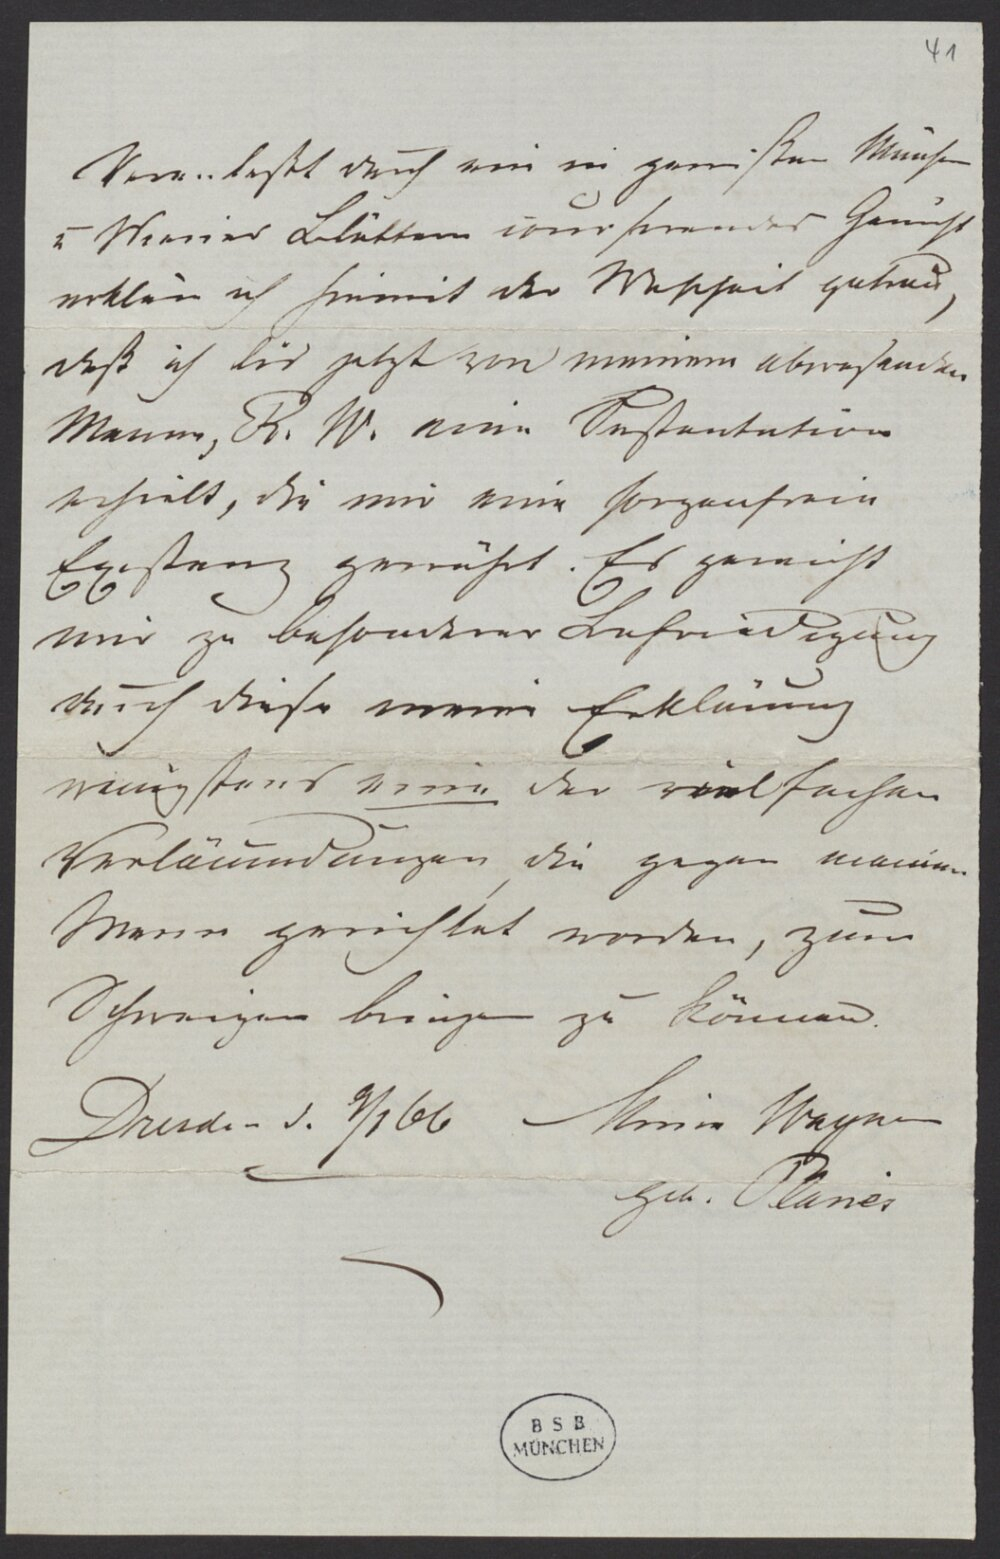 41
Veranlaßt durch ein in gewissen Münchn
u Wiener Blättern coursirendes Gerücht
erkläre ich hiemit der Wahrheit getreu,
daß ich bis jetzt von meinem abwesenden
Manne, R. W. eine Sustentation
erhielt, die mir eine sorgenfreie
Existenz gewährt. Es gereicht
mir zu besonderer Befriedigung
durch diese meine Erklärung
wenigstens eine der vielfachen
Verläumdungen, die gegen meinen
Mann gerichtet worden, zum
Schweigen bringen zu können.
Dresden d. 9/1 66 Minna Wagner
geb. Planer
BSB
MÜNCHEN